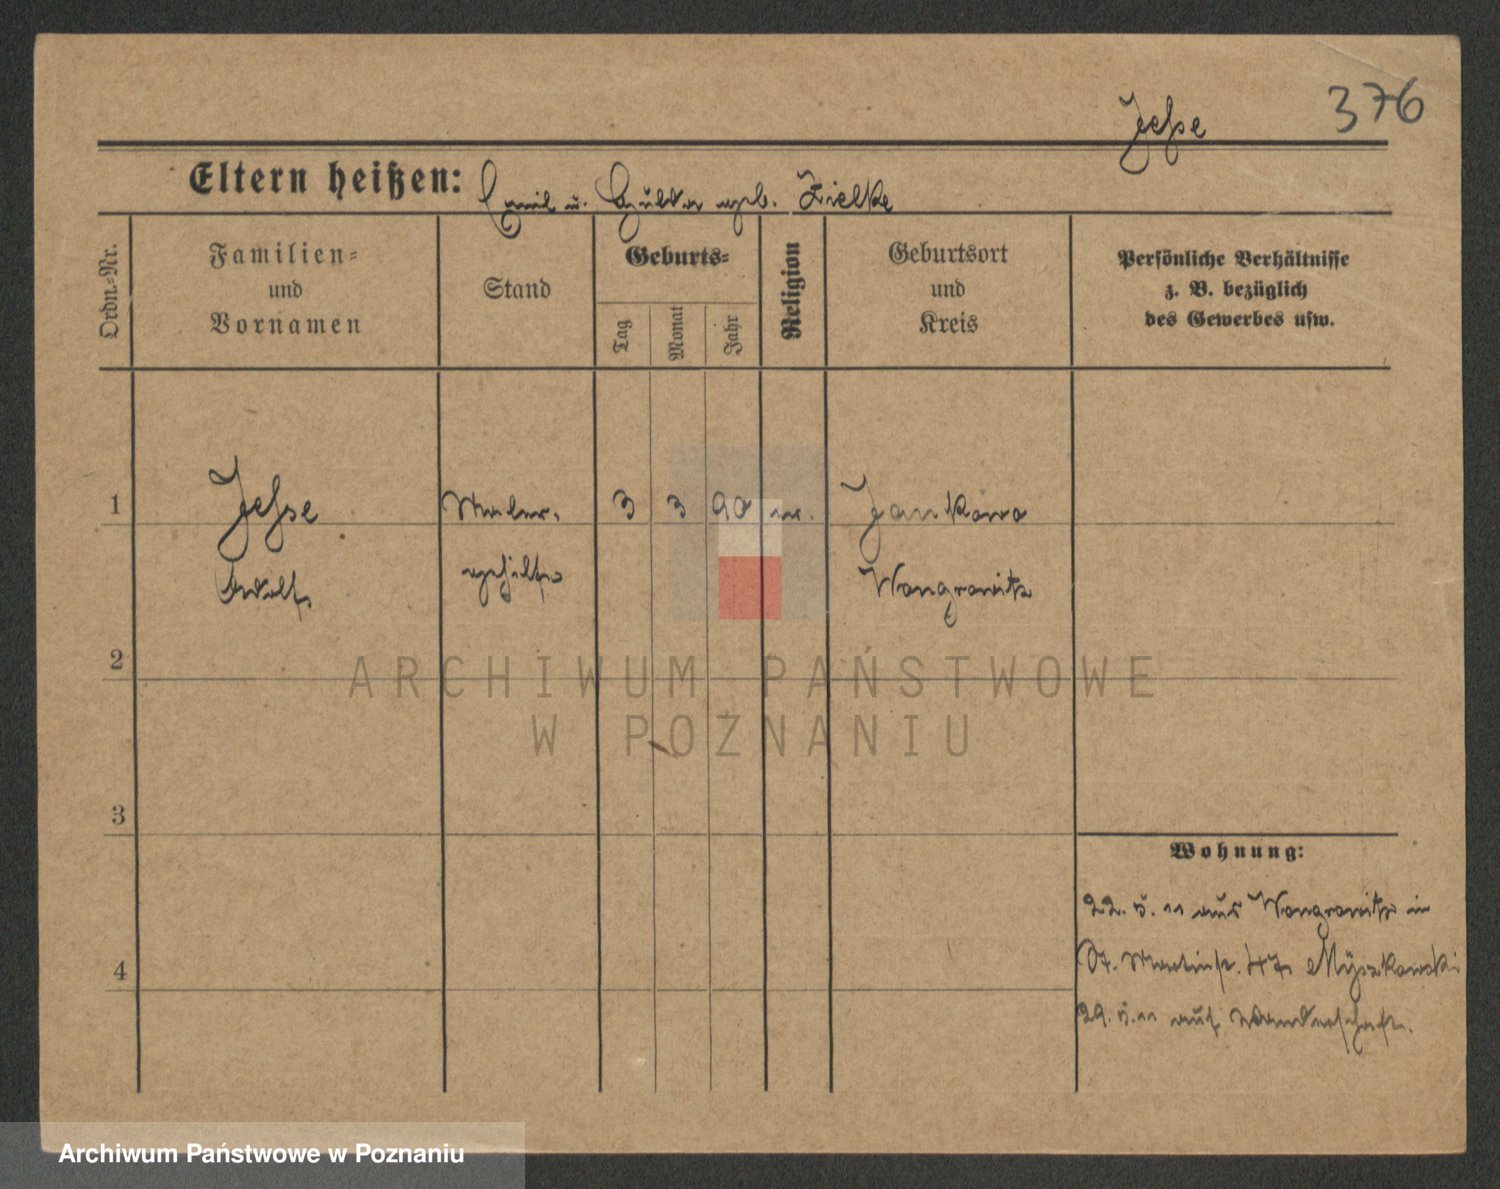 376
Jesse
Eltern heißen: Emil u. Hulda geb. Zielke
Ordn.-Nr.
Familien- und Vornamen
Stand
Geburts-
Tag
Monat
Jahr
Religion
Geburtsort und Kreis
Persönliche Verhältnisse z. B. bezüglich des Gewerbes usw.
1
Jesse
Maler-
3
3
90
Jankowo
Adolf
gehilfe
Wongrowitz
2
ARCHIWUM PAŃSTWOWE
W POZNANIU
3
Wohnung:
22.5.11 aus Wongrowitz in
St. Martinstr. 47 Myszkowski
4
29.5.11 auf Wanderschaft.
Archiwum Państwowe w Poznaniu